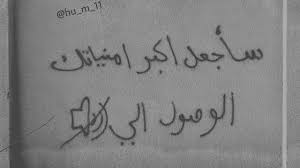 @hu_m_11
سأجعل اكبر امنياتك
الوصول الي